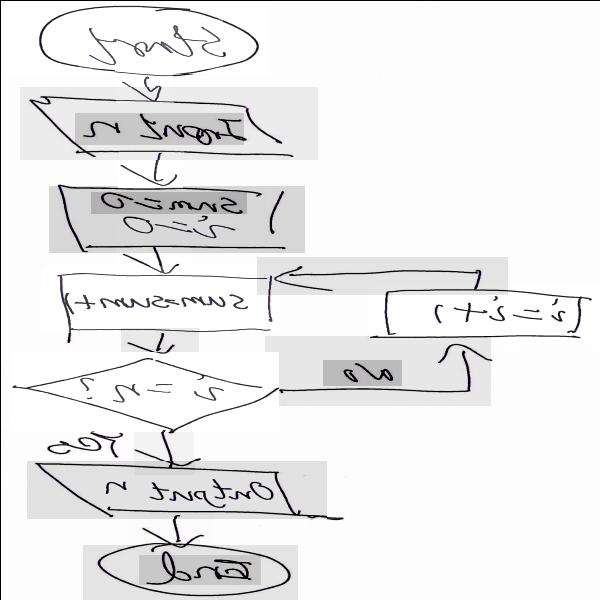 Start
Input n
sum=0
i=0
sum=sum+1
i=i+1
i=n?
No
Yes
Output n
End